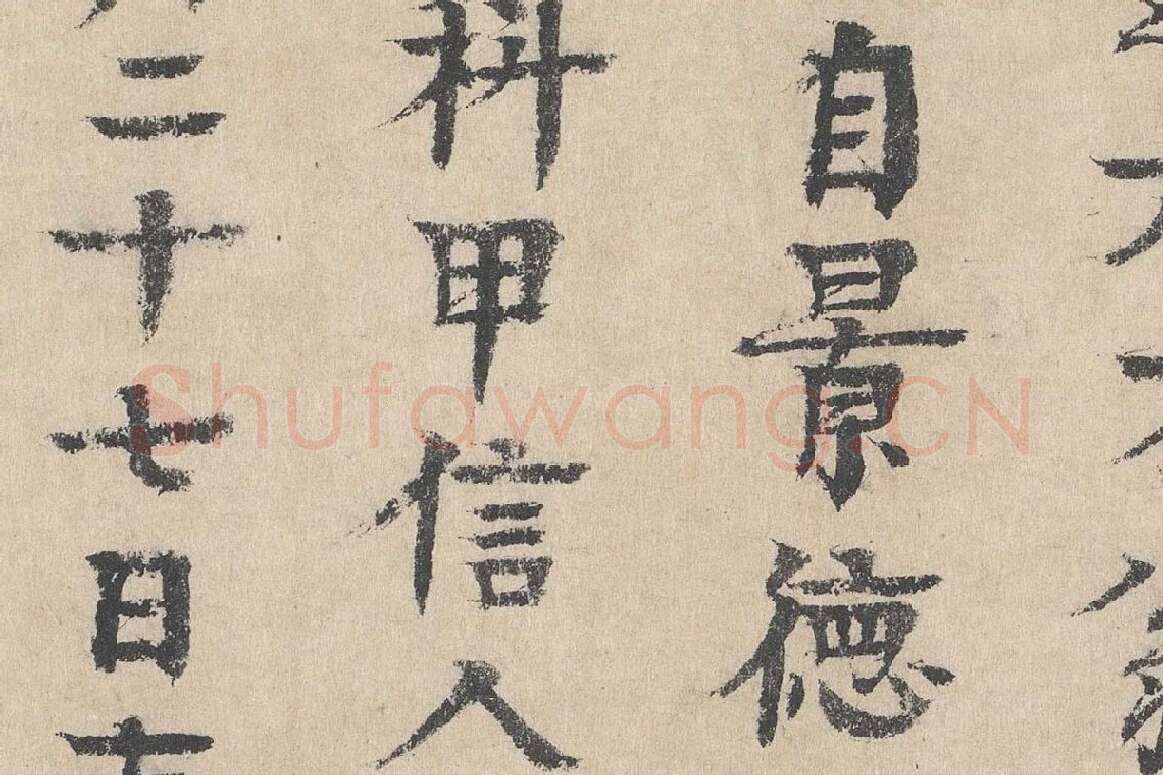 自景德
科甲信人
二十七日
Shufawang.CN